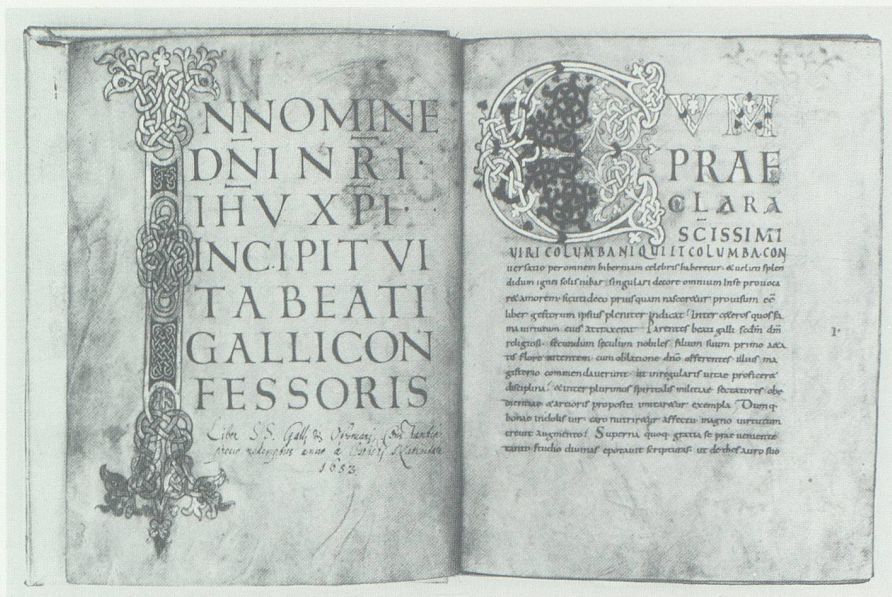 INNOMINE
DN̄I N R̄I·
IHV XP̄I·
INCIPIT VI
TA BEATI
GALLI CON
FESSORIS
1653
CUM
PRAE
CLARA
SC̄ISSIMI
VIRI COLUMBANI QUI ET COLUMBA. CON
versatio per omnem hiberniam celebris haberetur. & veluti splen
didum ignei solis iubar. singulari decore omnium in se provoca
ret amorem. sicuti de eo prius quam nasceretur provisum eē
liber gestorum ipsius pleniter indicat. Inter ceteros quos fa
ma virtutum eius attraxerat Parentes beati galli scdm dm̄
religiosi. secundum seculum nobiles filium suum primo aeta
tis flore nitentem. cum oblatione dnō offerentes illius ma
gisterio commendaverunt. ut in regularis vitae proficeret
disciplina. & inter plurimos spiritalis militiae sectatores obe
dientiae & artioris propositi imitaretur exempla. Dumq·
bonae indolis vir. caro nutriretur affectu magno virtutum
crevit augmento. Superna quoq· gratia se praeveniente
tanto studio divinas epotavit scripturas. ut de thesauro suo
1r